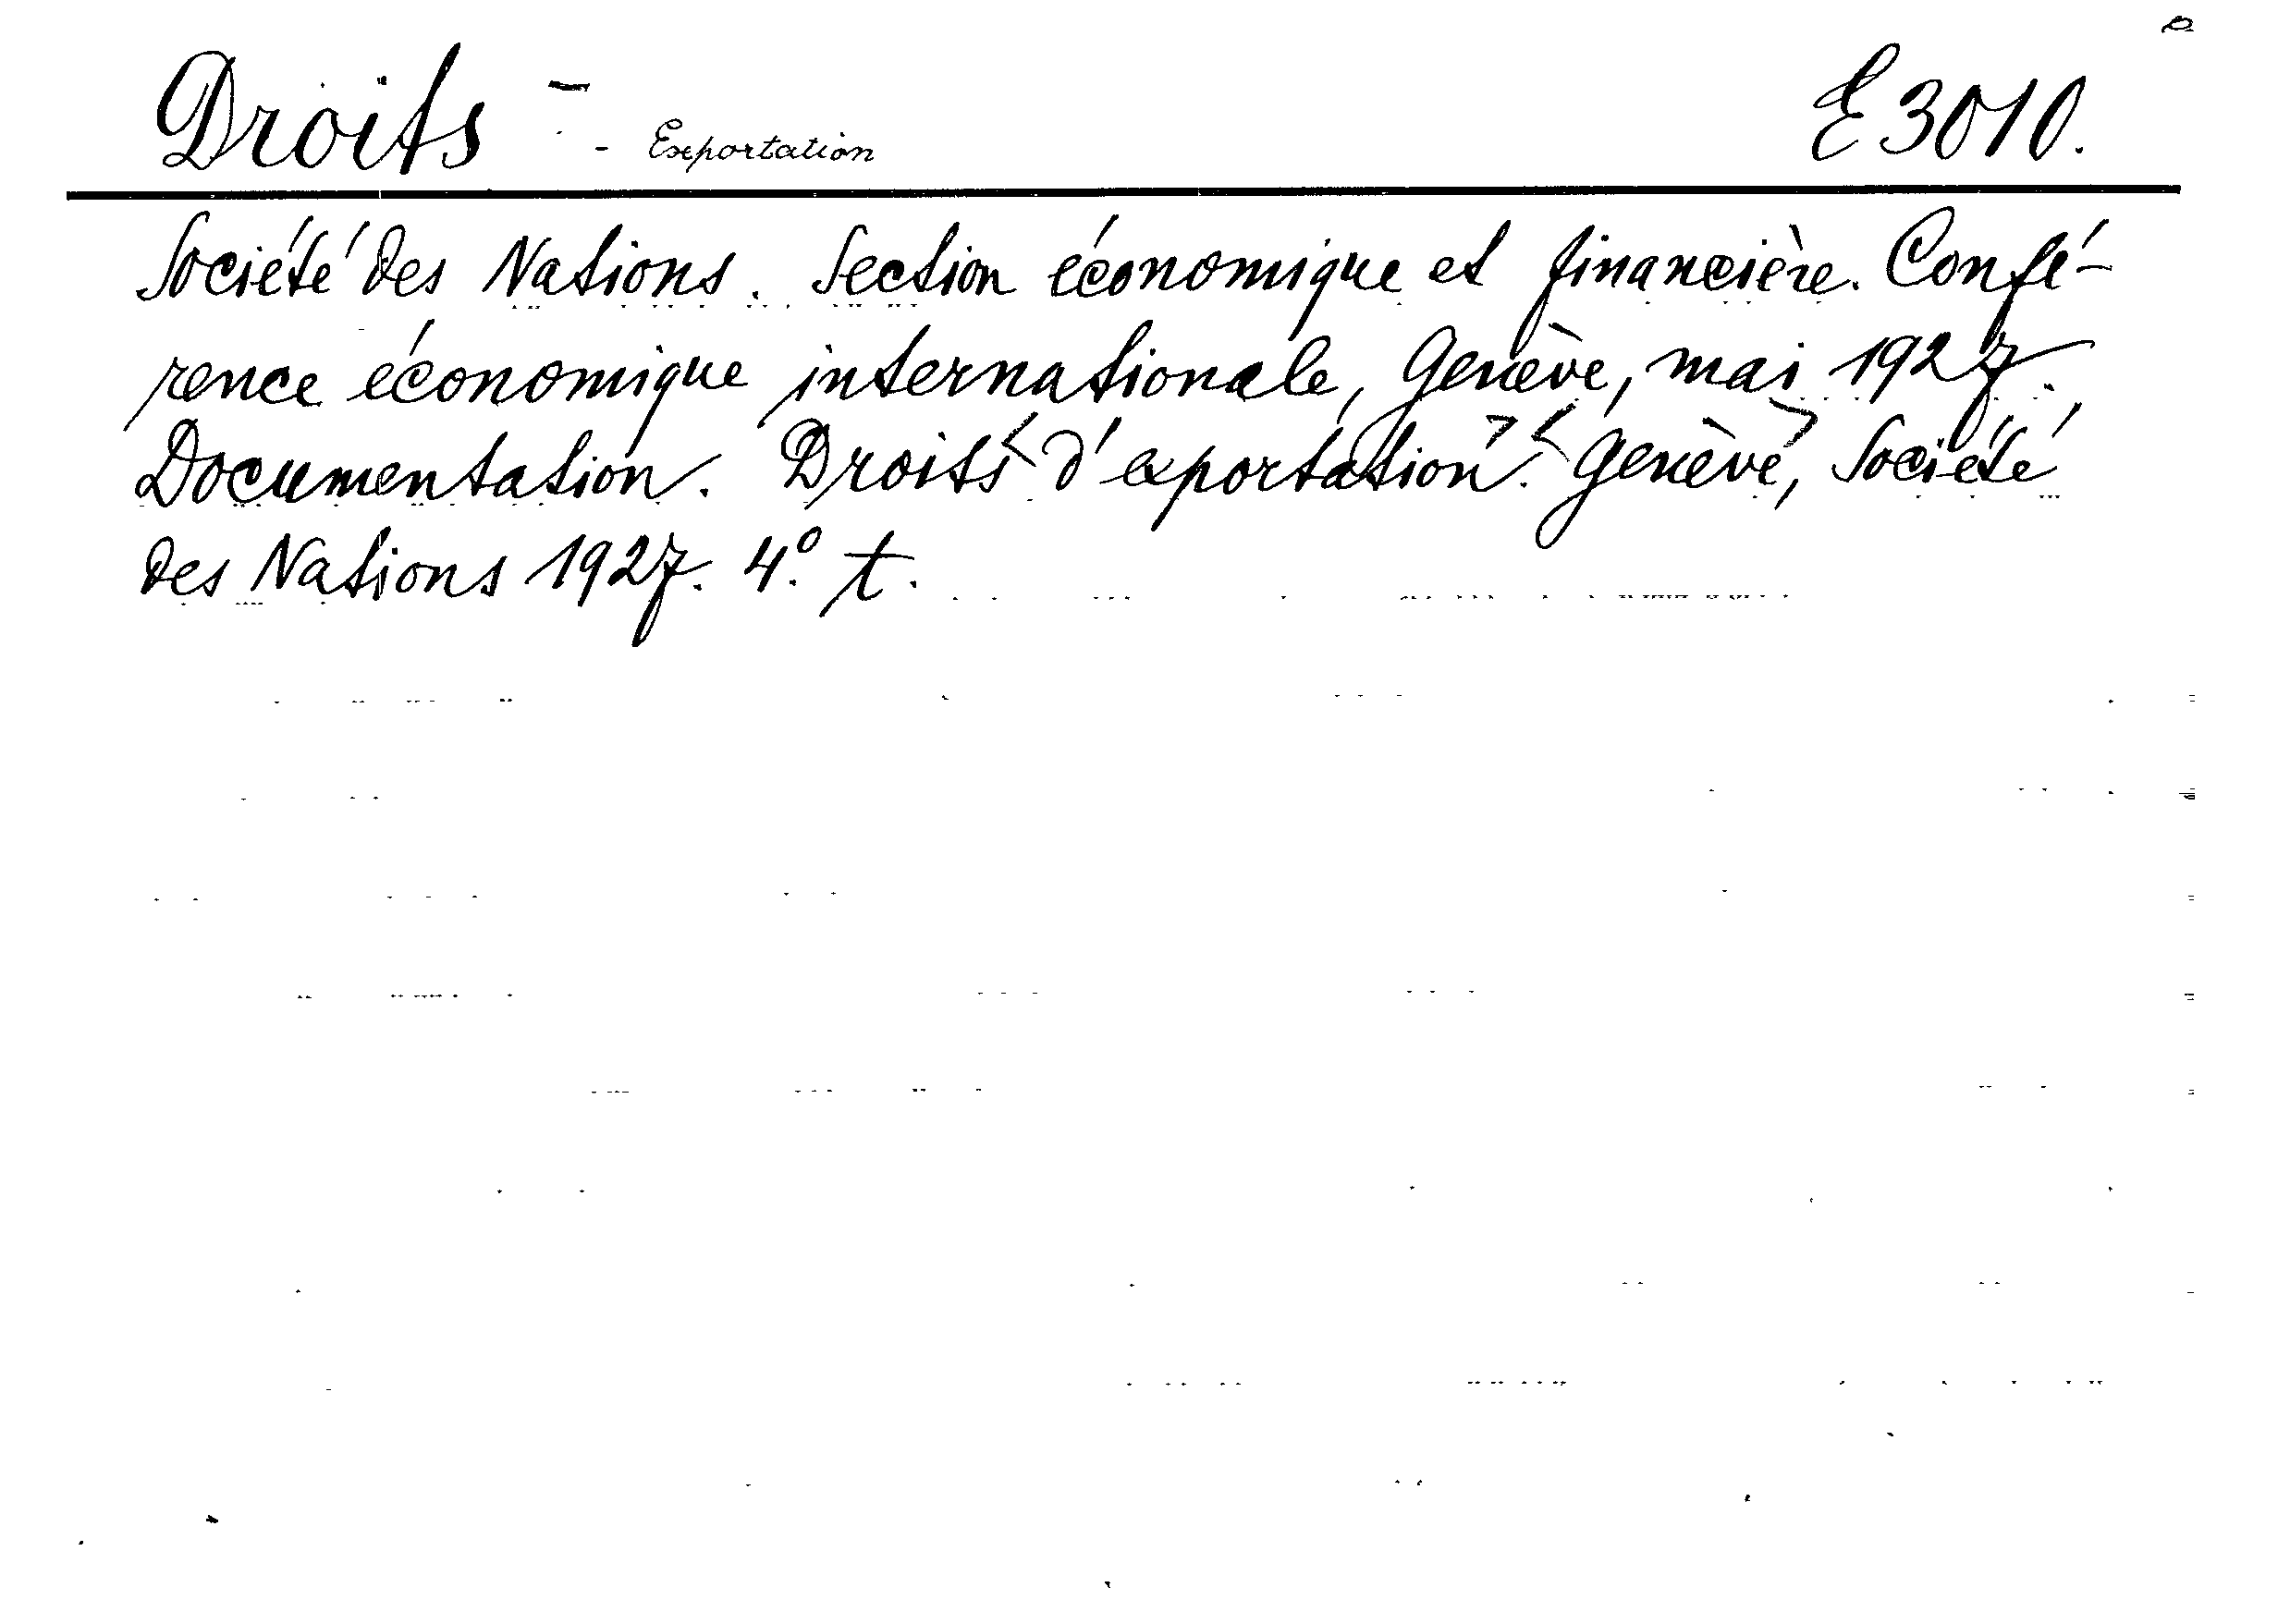 Droits - - Exportation E 3010.
Société des Nations. Section économique et financière. Confé-
rence économique internationale, Genève, mai 1927.
Documentation. Droits <d'exportation.> <Genève>, Société
des Nations 1927. 4.º t.